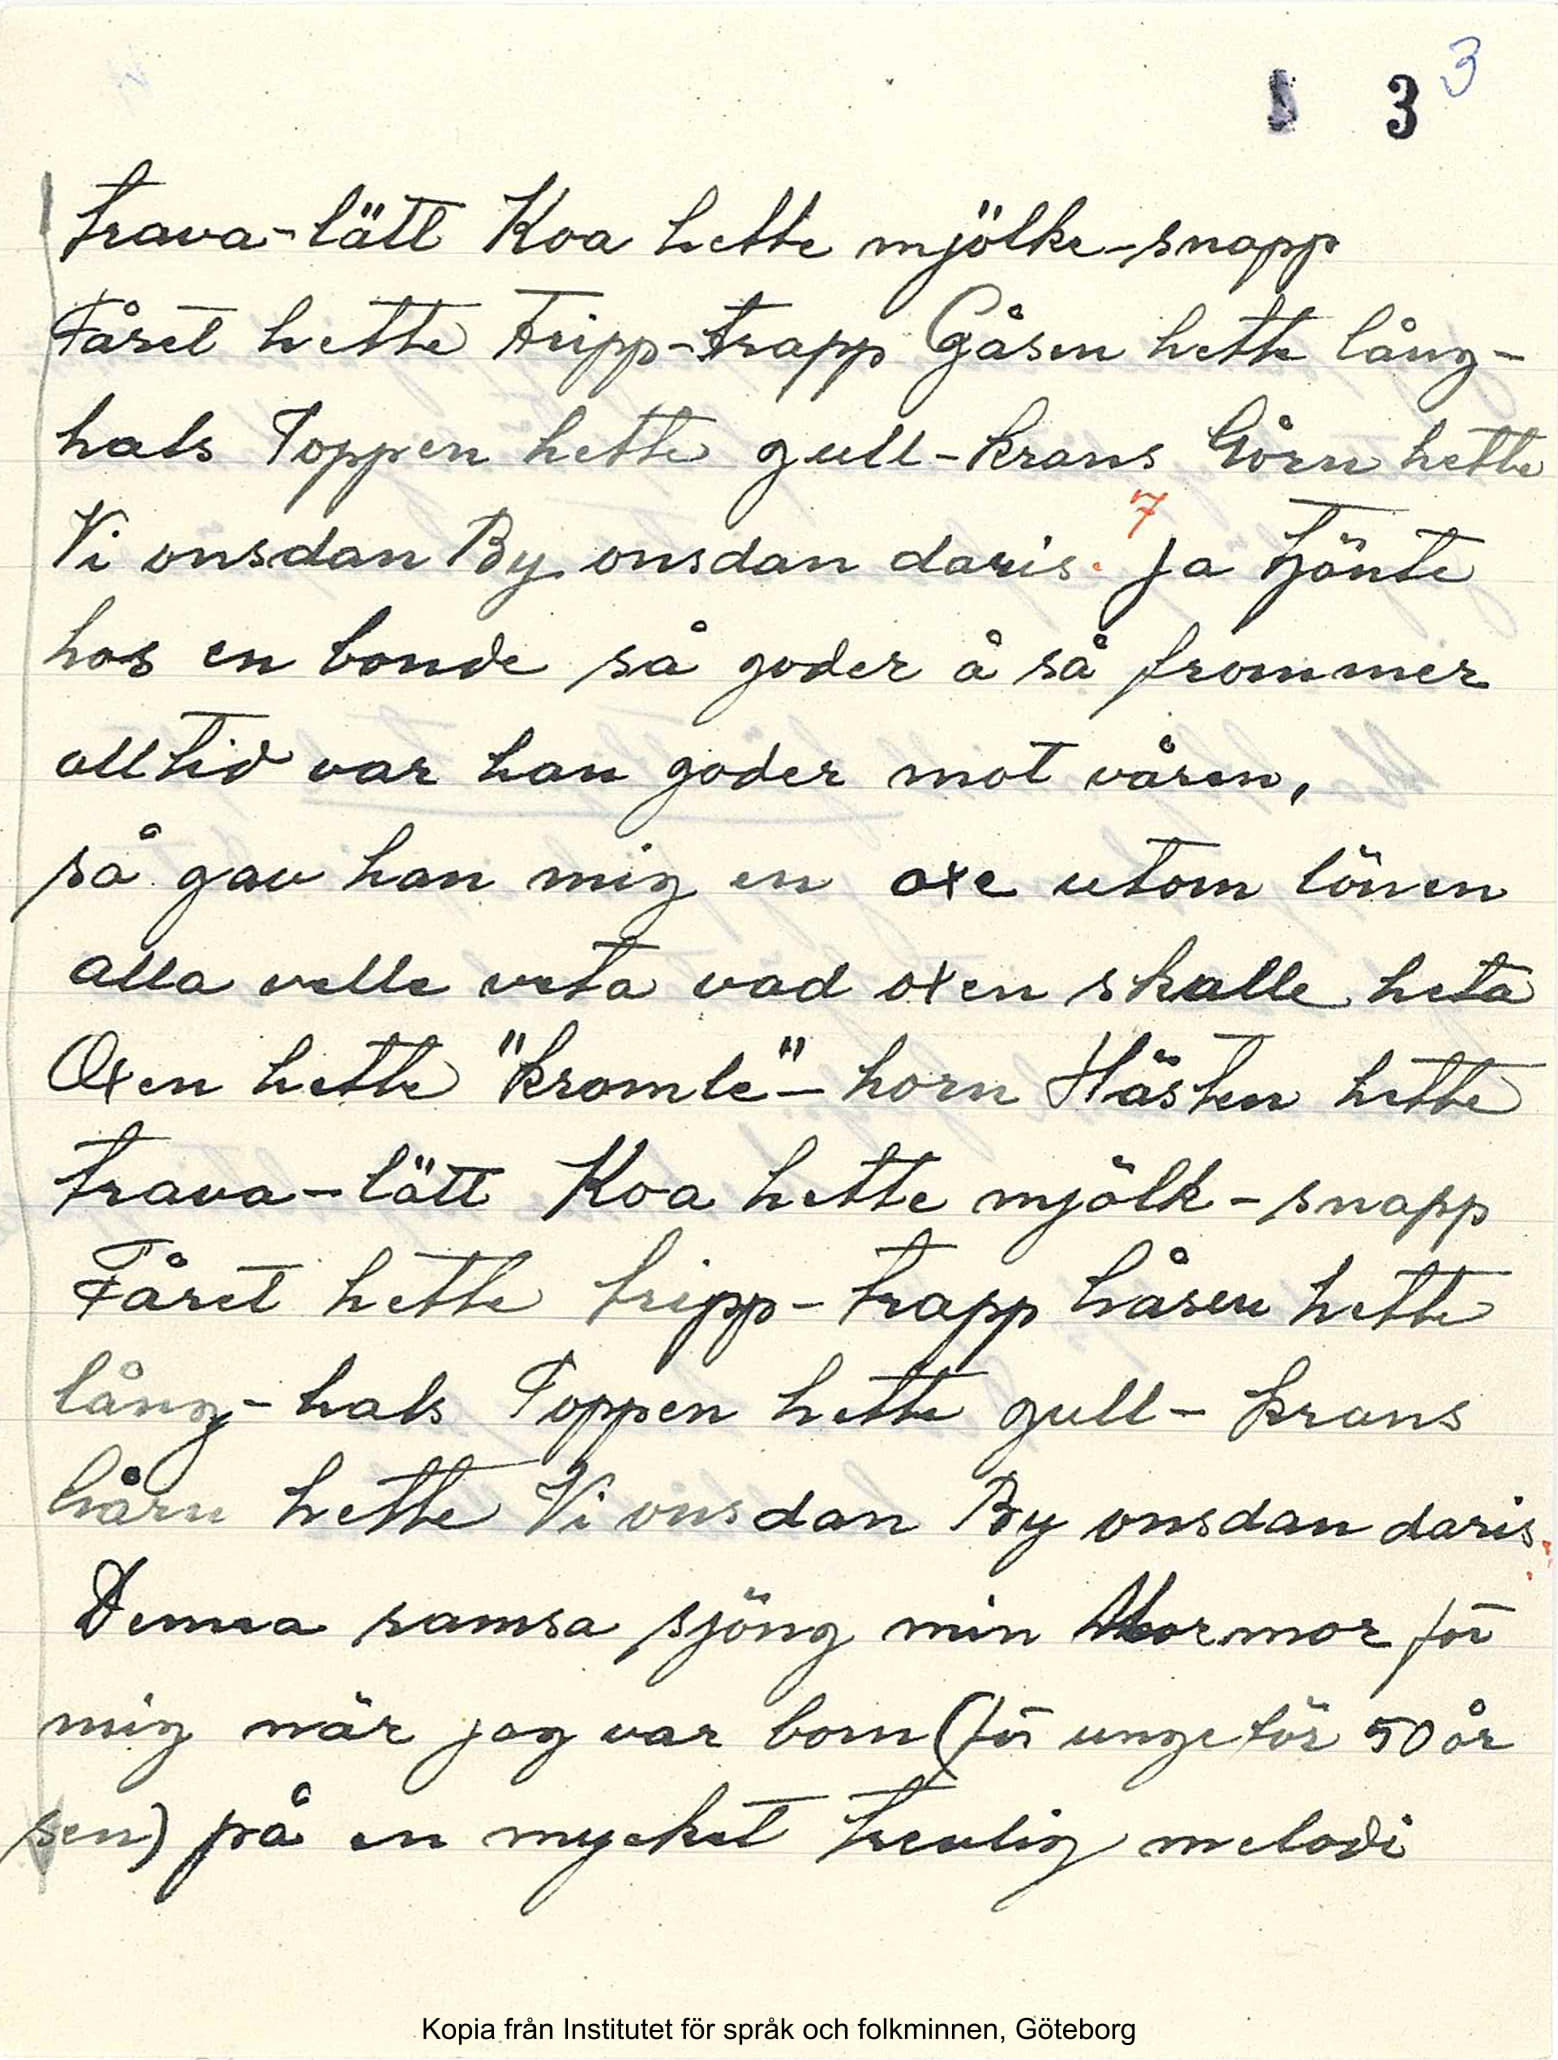 3 3
trava-lätt Koa hette mjölke-snapp
Fåret hette Tripp-trapp Gåsen hette lång-
hals Toppen hette gull-krans Gårn hette
7
Vi onsdan By onsdan daris. Ja tjönte
hos en bonde så goder å så frommer
alltid var han goder mot våren,
så gav han mig en oxe utom lönen
alla velle veta vad oxen skalle heta
Oxen hette "kromle"-horn Hästen hette
trava-lätt Koa hette mjölk-snapp
Fåret hette tripp-trapp Gåsen hette
lång-hals Toppen hette gull-krans
Gårn hette Vi onsdan By onsdan daris.
Denna ramsa sjöng min Mormor för
mig när jag var born (för ungefär 50 år
sen) på en mycket trevlig melodi
Kopia från Institutet för språk och folkminnen, Göteborg